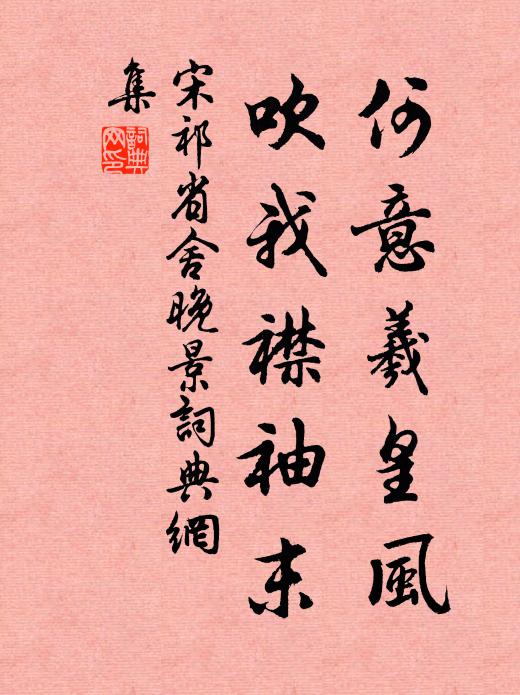 何意羲皇風
吹我襟袖末
宋祁省舍晚景詞典網
集
詞典網印